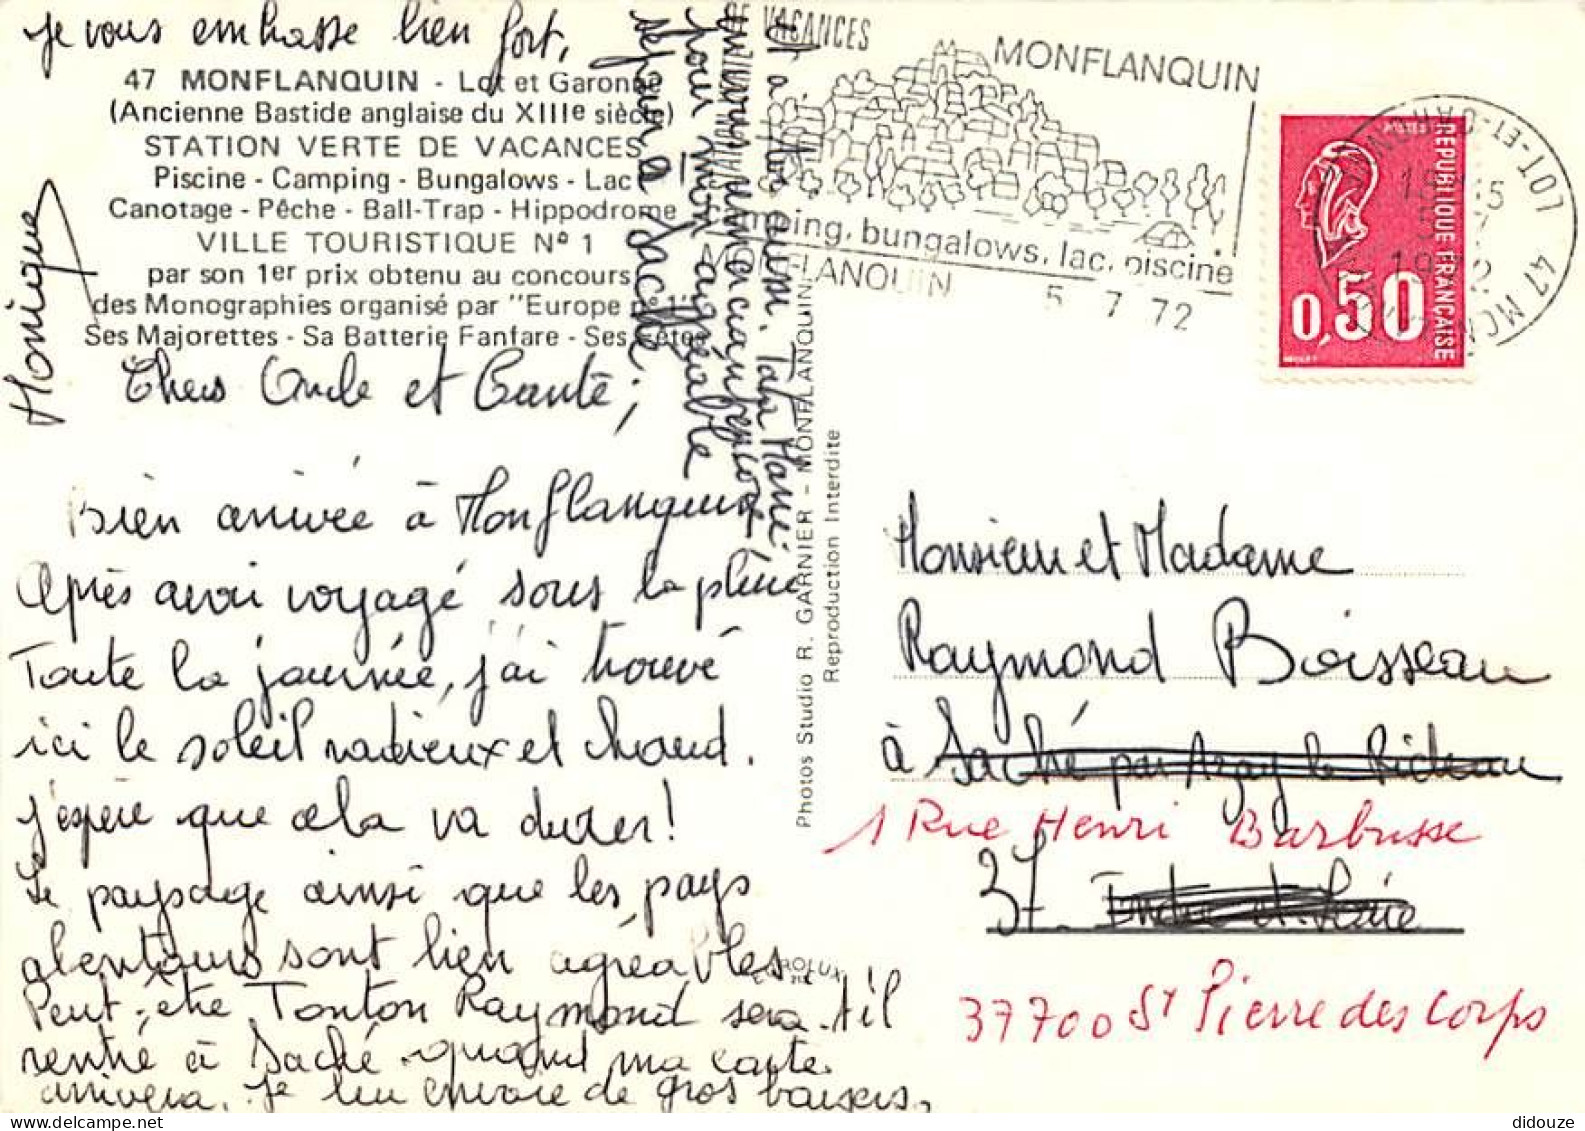 je vous embrasse bien fort,
47 MONFLANQUIN - Lot et Garonne
(Ancienne Bastide anglaise du XIIIe siècle)
STATION VERTE DE VACANCES
Piscine - Camping - Bungalows - Lac
Canotage - Pêche - Ball-Trap - Hippodrome
VILLE TOURISTIQUE Nº 1
par son 1er prix obtenu au concours
des Monographies organisé par "Europe nº 1"
Ses Majorettes - Sa Batterie Fanfare - Ses Fêtes
Monique
Chers Oncle et Tante,
Bien arrivée à Monflanquin
Après avoir voyagé sous la pluie
Toute la journée, j'ai trouvé
ici le soleil radieux et chaud.
j'espère que cela va durer!
Le paysage ainsi que les pays
alentours sont bien agréables
Peut-être Tonton Raymond sera-t-il
rentré à Saché quand ma carte
arrivera. Je lui envoie de gros baisers,
séjour à Saché.
pour mon agréable
et à toi aussi. Tata Marie.
Photos Studio R. GARNIER - MONFLANQUIN
Reproduction Interdite
DE VACANCES
MONFLANQUIN
camping, bungalows, lac, piscine
MONFLANQUIN
5 7 72
POSTES
REPUBLIQUE FRANÇAISE
0,50
47 MONFLANQUIN
LOT-ET-GARONNE
5-7
1972
Monsieur et Madame
Raymond Boisseau
à Saché par Azay le Rideau
1 Rue Henri Barbusse
37. Indre et Loire
37700 St Pierre des Corps
didouze